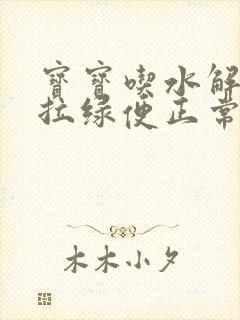 寶寶喫水解
拉綠便正常
木木小夕